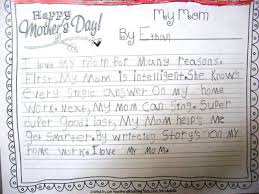 Happy
Mother's Day!
My Mom
By Ethan
I love my mom for Many reasons.
First, My Mom is intelligent. She Know's
every single answer On my home
Work. Next, My Mom Can Sing. Super
duper Good! Last, My Mom help's Me
get Smarter. By writeing Story's On my
home work. I love My MOM.